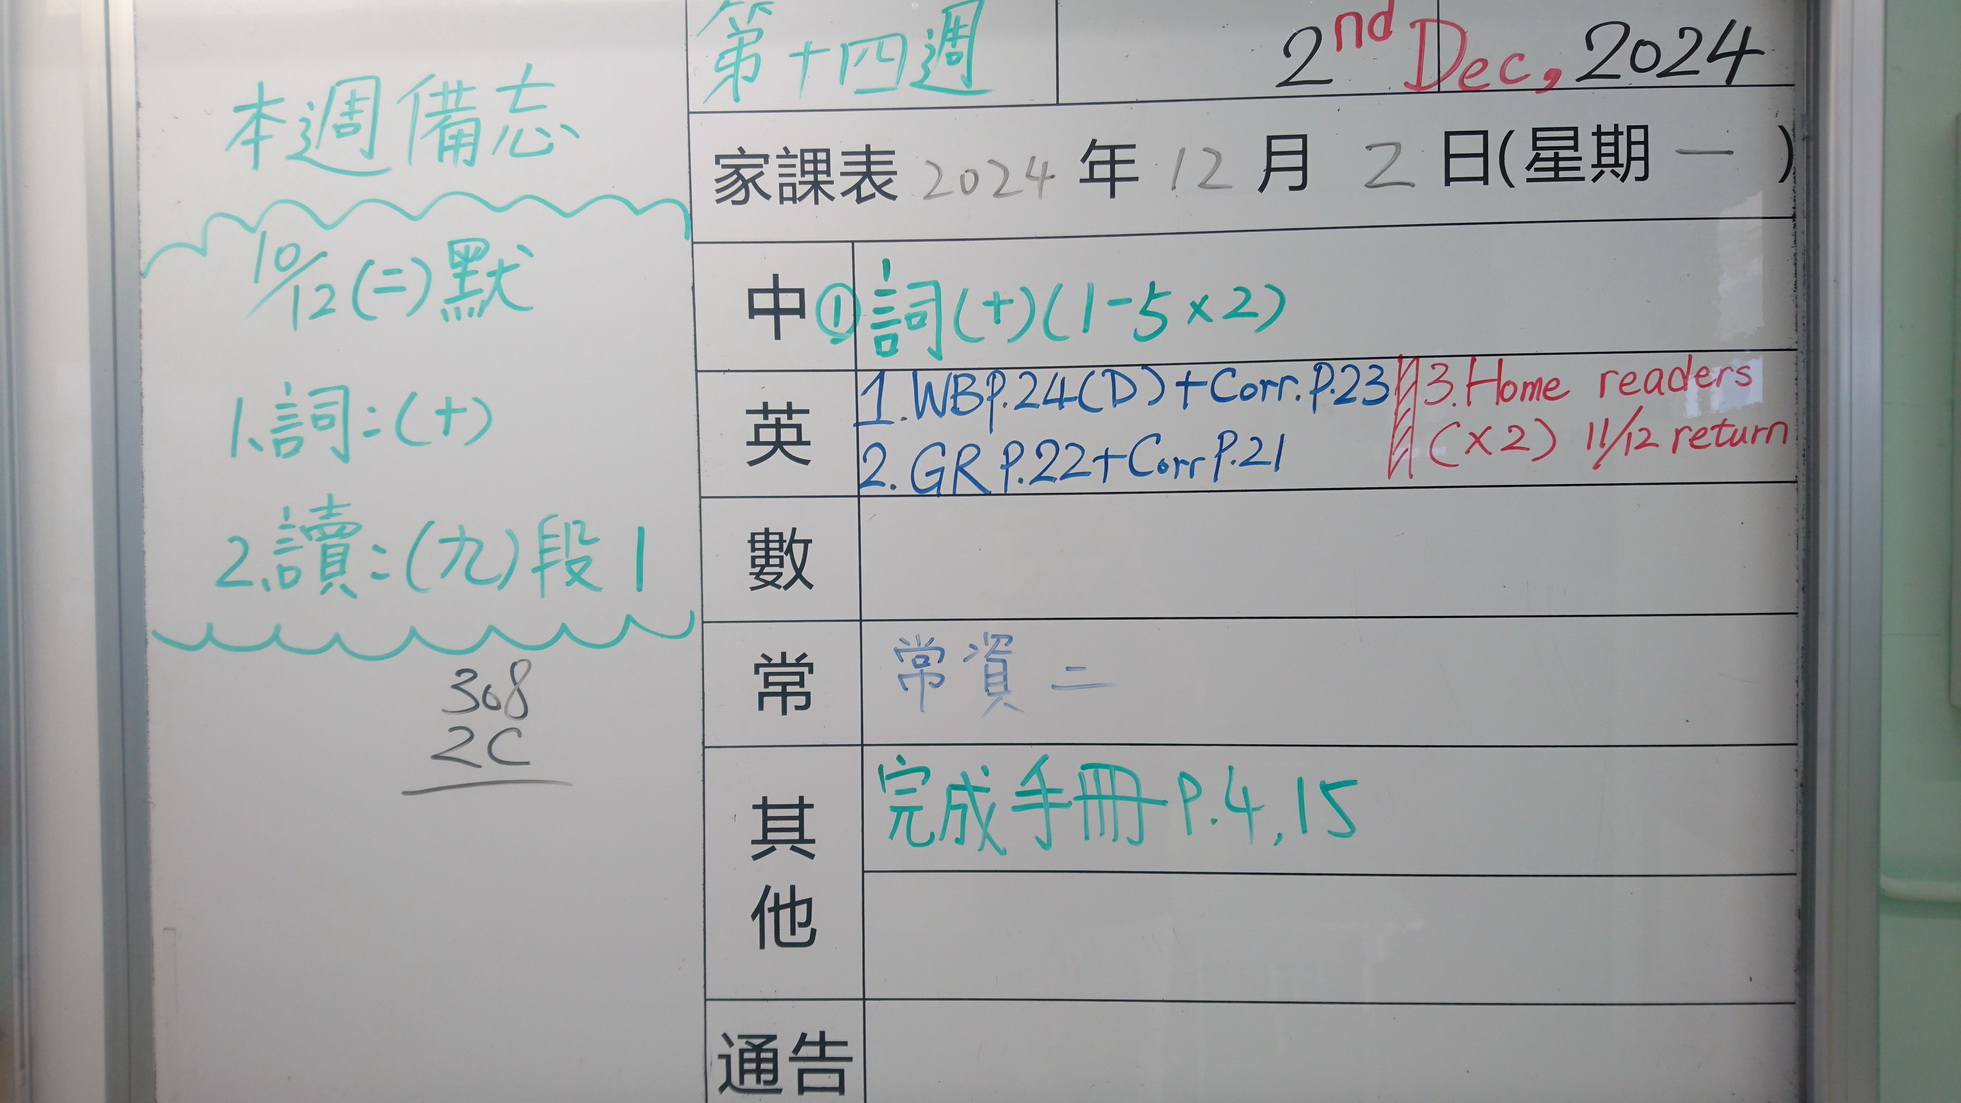 本週備忘
10/12(二)默
1.詞：(十)
2.讀：(九)段1
308
2C
第十四週
2nd Dec, 2024
家課表 2024 年 12 月 2 日(星期 一 )
中 ①詞(十)(1-5×2)
英 1.WBP.24(D)+Corr.P.23 3.Home readers
2.GR P.22+Corr P.21 (×2) 11/12 return
數
常 常資二
其他 完成手冊P.4,15
通告